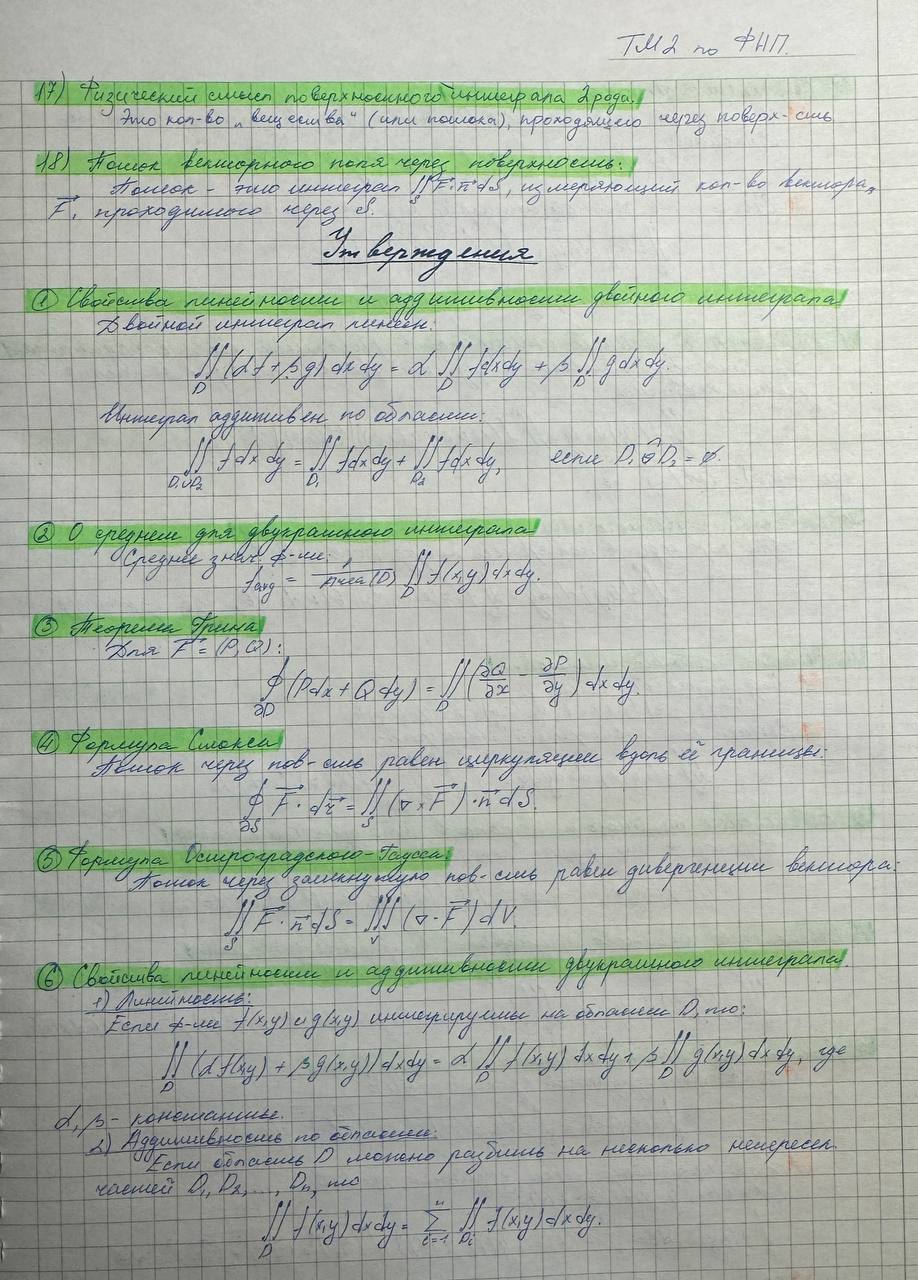 ТМ2 по ФНП.
17) Физический смысл поверхностного интеграла 2 рода.
Это кол-во „вещества“ (или потока), проходящего через поверх-сть
18) Поток векторного поля через поверхность:
Поток - это интеграл ∬_S F⃗·n⃗ dS, измеряющий кол-во вектора,
F⃗, проходимого через S.
Утверждения
① Свойства линейности и аддитивности двойного интеграла
Двойной интеграл линеен:
∬_D (αf + βg) dx dy = α ∬_D f dx dy + β ∬_D g dx dy.
Интеграл аддитивен по области:
∬_{D₁∪D₂} f dx dy = ∬_{D₁} f dx dy + ∬_{D₂} f dx dy, если D₁ ∩ D₂ = ∅.
② О среднем для двукратного интеграла
Среднее знач. ф-ии:
f_avg = 1/Area(D) ∬_D f(x,y) dx dy.
③ Теорема Грина
Для F⃗ = (P, Q):
∮_{∂D} (P dx + Q dy) = ∬_D (∂Q/∂x - ∂P/∂y) dx dy.
④ Формула Стокса
Поток через пов-сть равен циркуляции вдоль её границы:
∮_{∂S} F⃗ · dr⃗ = ∬_S (∇ × F⃗) · n⃗ dS.
⑤ Формула Остроградского-Гаусса:
Поток через замкнутую пов-сть равен дивергенции вектора:
∬_S F⃗ · n⃗ dS = ∭_V (∇ · F⃗) dV.
⑥ Свойства линейности и аддитивности двукратного интеграла.
1) Линейность:
Если ф-ии f(x,y) и g(x,y) интегрируемы на области D, то:
∬_D (αf(x,y) + βg(x,y)) dx dy = α ∬_D f(x,y) dx dy + β ∬_D g(x,y) dx dy, где
α, β - константы.
2) Аддитивность по области:
Если область D можно разбить на несколько непересек.
частей D₁, D₂, ..., Dn, то
∬_D f(x,y) dx dy = ∑_{i=1}^n ∬_{Di} f(x,y) dx dy.